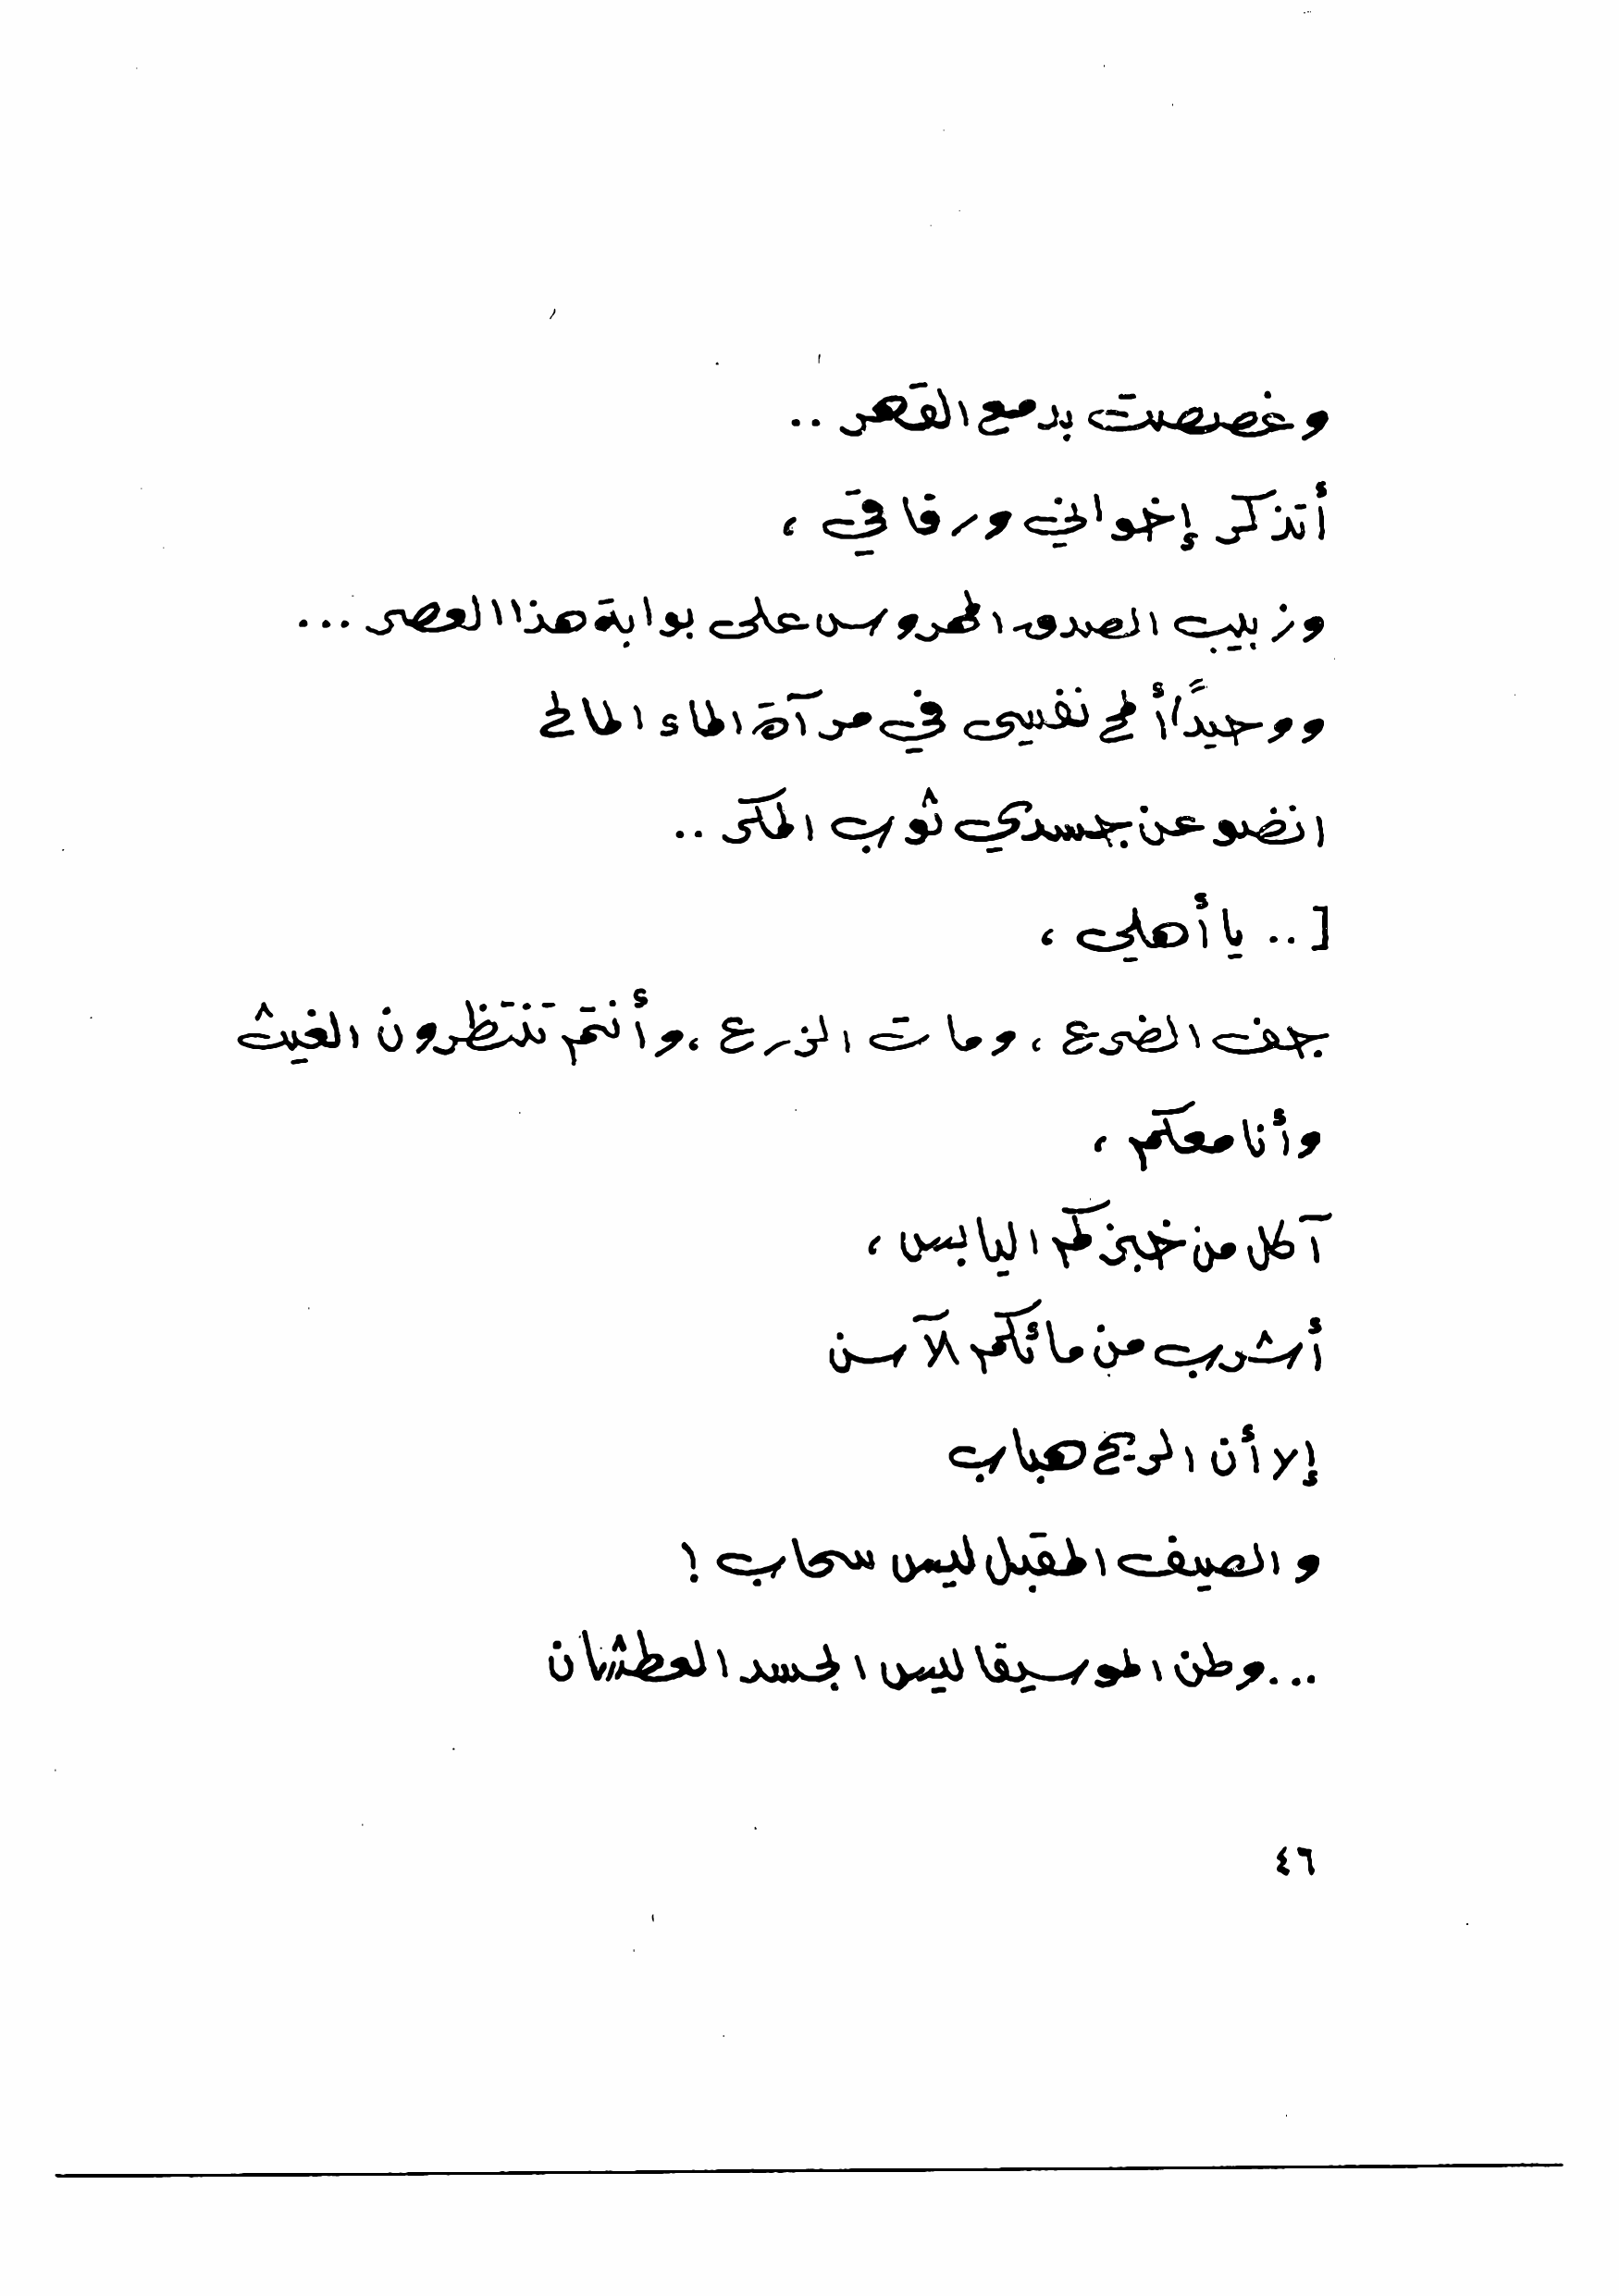 وغصصت بدمع القهر ..
أتذكر إخواني ورفاقي ،
وزبيب الصدق المهروس على بوابة هذا العصر ...
ووحيداً ألمح نفسي في مرآة الماء المالح
انضو عن جسدي ثوب المكر ..
[ .. يا أهلي ،
جف الضرع ، ومات الزرع ، وأنتم تنتظرون الغيث
وأنا معكم ،
آكل من خبزكم اليابس ،
أشرب من مائكم الآسن
إلا أن الريح هباب
والصيف المقبل ليس سحاب !
... وطن الموسيقا ليس الجسد العطشان
٤٦